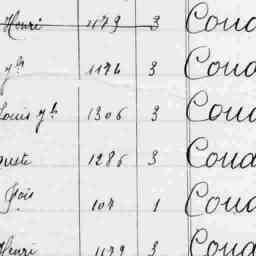 Henri 1179 3 Coud
1176 3 Coud
Louis 1306 3 Coud
uste 1286 3 Coud
Fois 107 1 Coud
Henri 1179 3 Coud